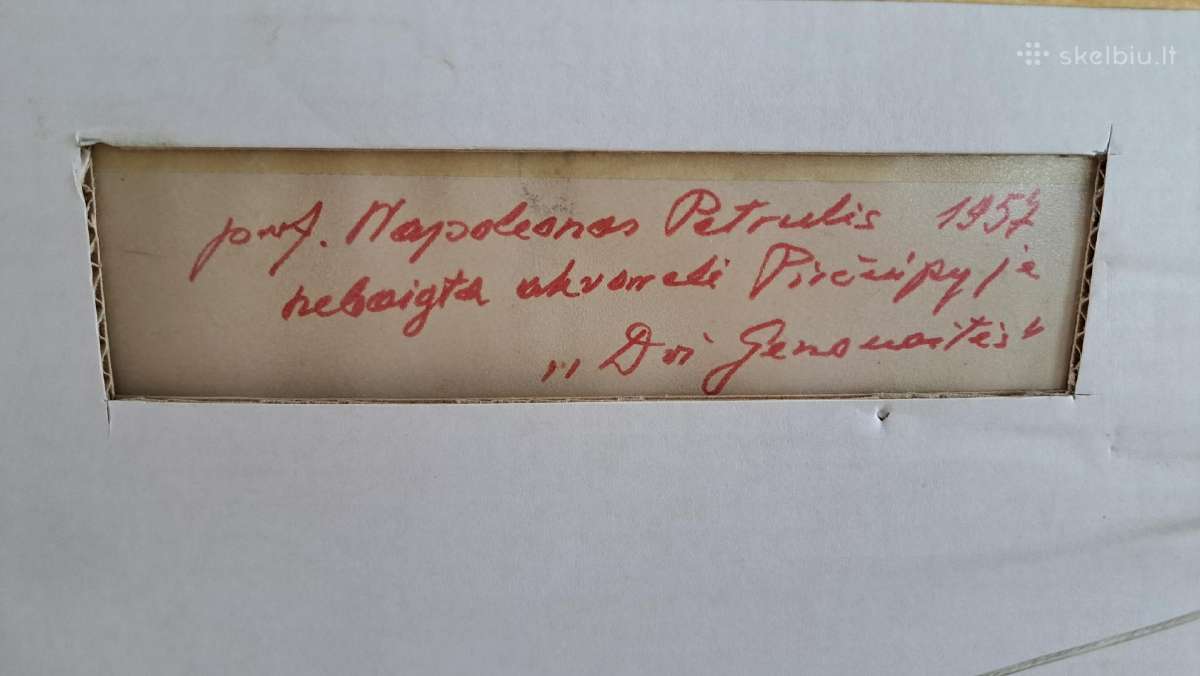 skelbiu.lt
prof. Napoleonas Petrulis 1957
nebaigta akvareli Pirčiupyje
„Dvi Genovaitės“